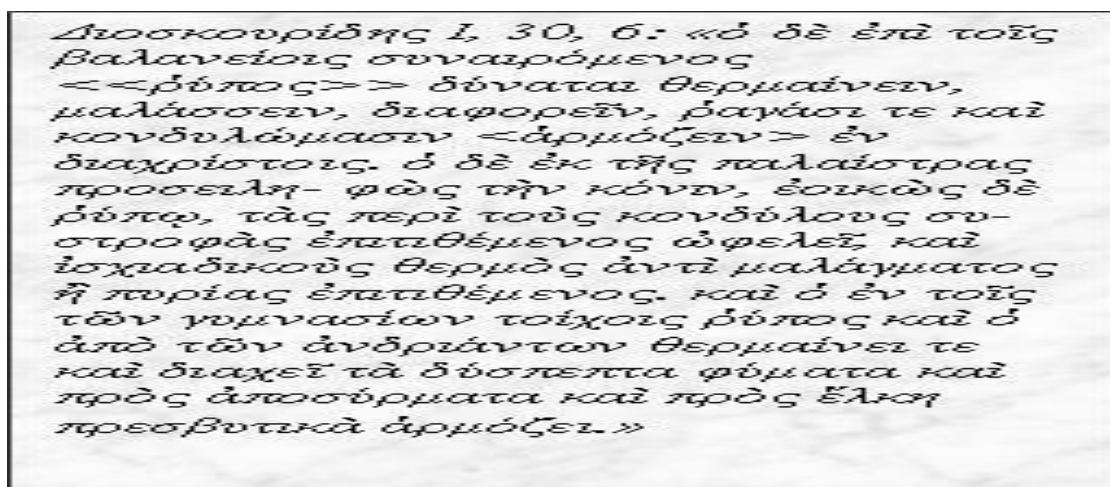 Διοσκουρίδης I, 30, 6: «ὁ δὲ ἐπὶ τοῖς
βαλανείοις συναιρόμενος
<<ῥύπος>> δύναται θερμαίνειν,
μαλάσσειν, διαφορεῖν, ῥαγάσι τε καὶ
κονδυλώμασιν <ἁρμόζειν> ἐν
διαχρίστοις. ὁ δὲ ἐκ τῆς παλαίστρας
προσειλη- φὼς τὴν κόνιν, ἐοικὼς δὲ
ῥύπῳ, τὰς περὶ τοὺς κονδύλους συ-
στροφὰς ἐπιτιθέμενος ὠφελεῖ, καὶ
ἰσχιαδικοὺς θερμὸς ἀντὶ μαλάγματος
ἢ πυρίας ἐπιτιθέμενος. καὶ ὁ ἐν τοῖς
τῶν γυμνασίων τοίχοις ῥύπος καὶ ὁ
ἀπὸ τῶν ἀνδριάντων θερμαίνει τε
καὶ διαχεῖ τὰ δύσπεπτα φύματα καὶ
πρὸς ἀποσύρματα καὶ πρὸς ἕλκη
πρεσβυτικὰ ἁρμόζει.»